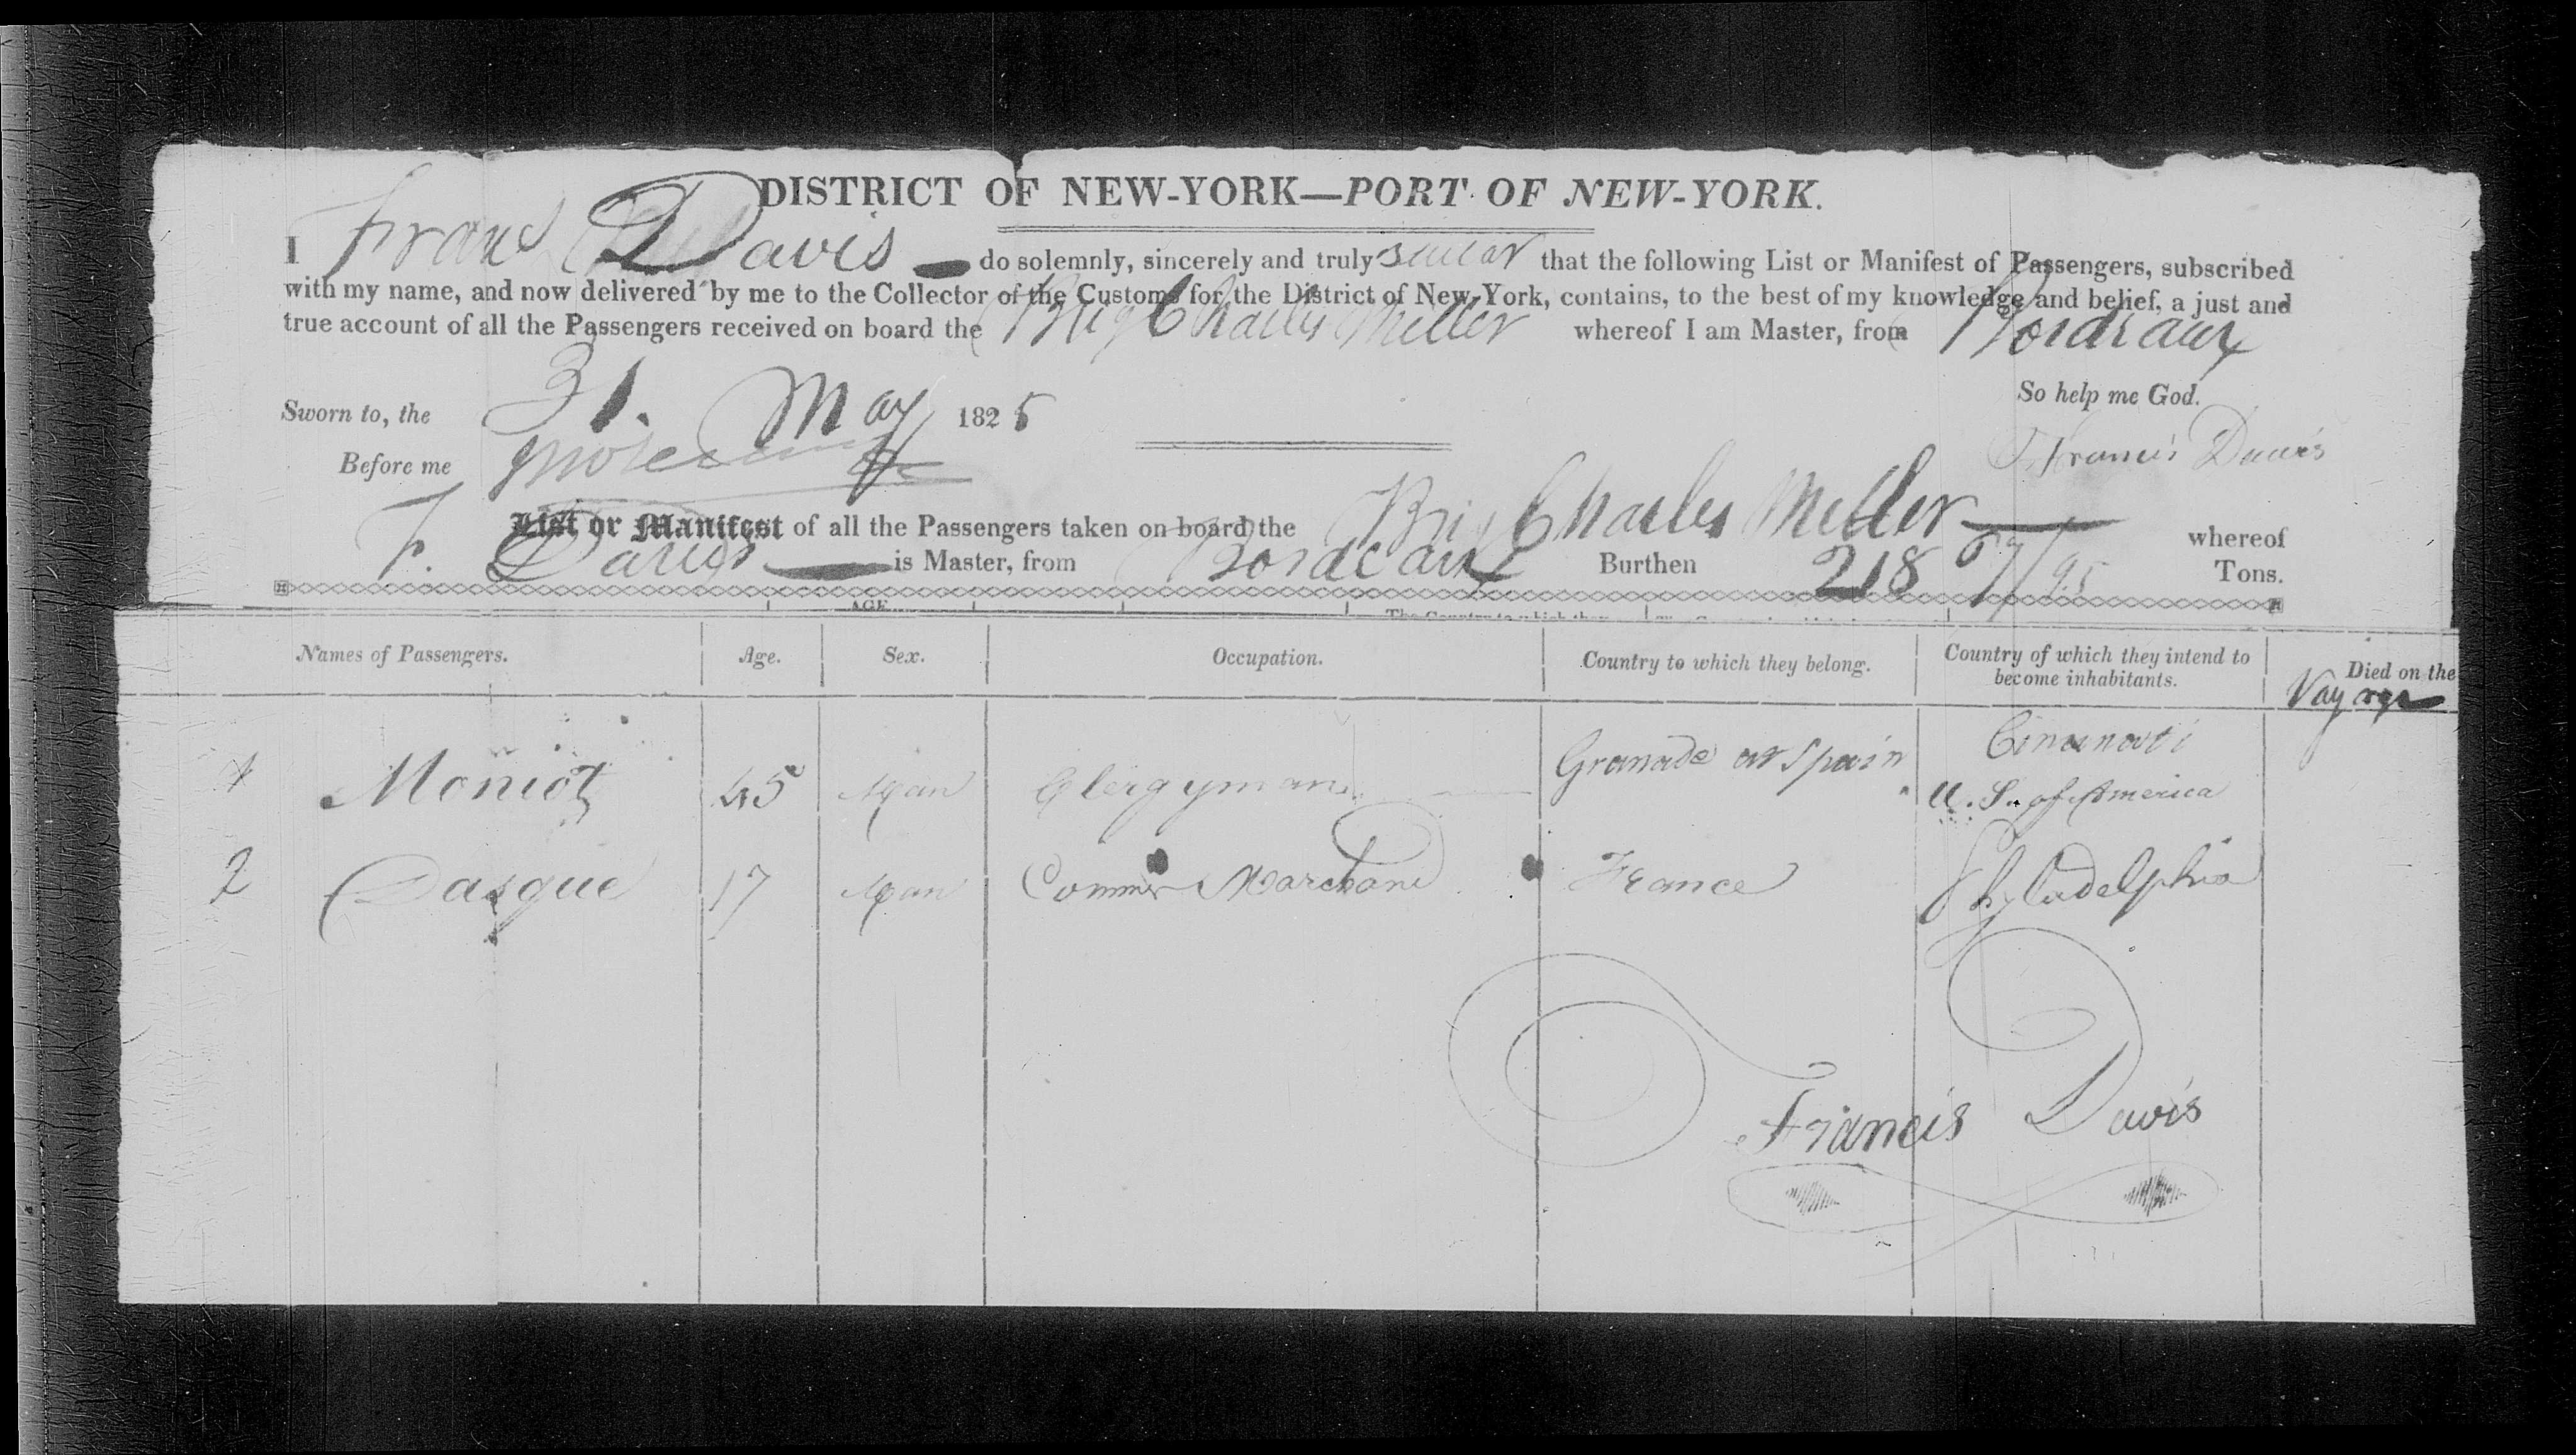 DISTRICT OF NEW-YORK—PORT OF NEW-YORK.
I Frans Davis do solemnly, sincerely and truly swear that the following List or Manifest of Passengers, subscribed
with my name, and now delivered by me to the Collector of the Customs for the District of New-York, contains, to the best of my knowledge and belief, a just and
true account of all the Passengers received on board the Brig Charles Miller whereof I am Master, from Bordeaux
So help me God.
Sworn to, the 31. May 1825
Before me
Francis Davis
List or Manifest of all the Passengers taken on board the Brig Charles Miller whereof
F. Davis is Master, from Bordeaux Burthen 218 67/95 Tons.
AGE
Names of Passengers. Age. Sex. Occupation. Country to which they belong. Country of which they intend to become inhabitants. Died on the Vayage
1 Moniot 45 Man Clergyman Granade at Spain Cinunati
U. S. of America
2 Dasque 17 Man Commer Marchand France Phyladelphia
Francis Davis